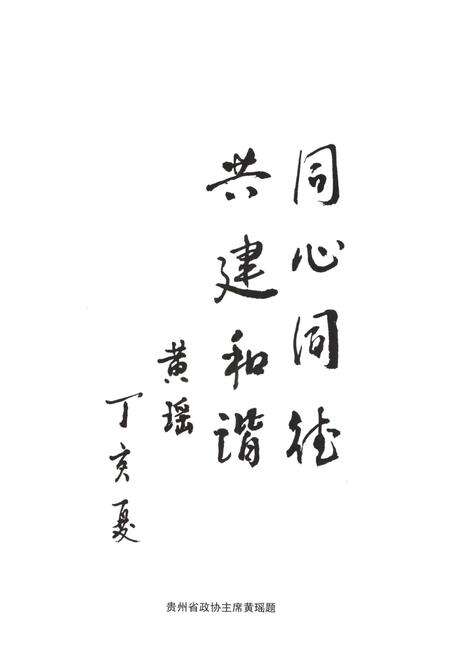 同心同德
共建和谐
黄瑶
丁亥夏
贵州省政协主席黄瑶题